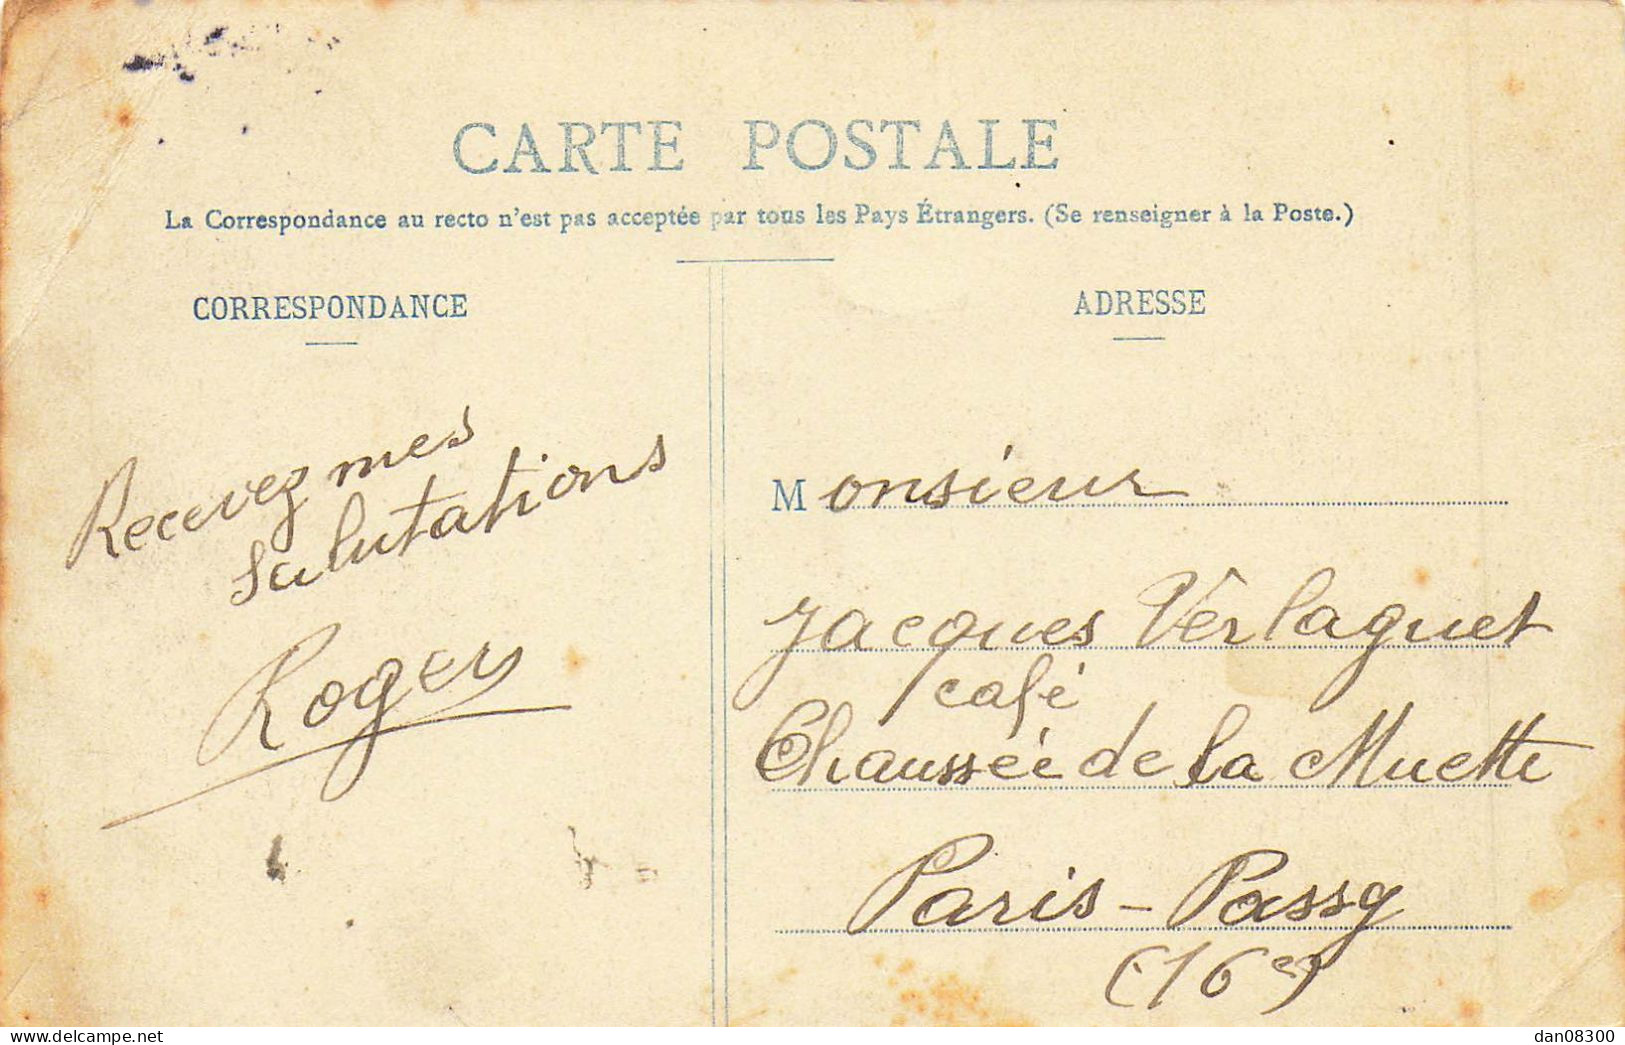 CARTE POSTALE
La Correspondance au recto n'est pas acceptée par tous les Pays Étrangers. (Se renseigner à la Poste.)
CORRESPONDANCE
Recevez mes
salutations
Roger
ADRESSE
Monsieur
Jacques Verlaguet
café
Chaussée de la Muette
Paris - Passy
(16e)
dan08300